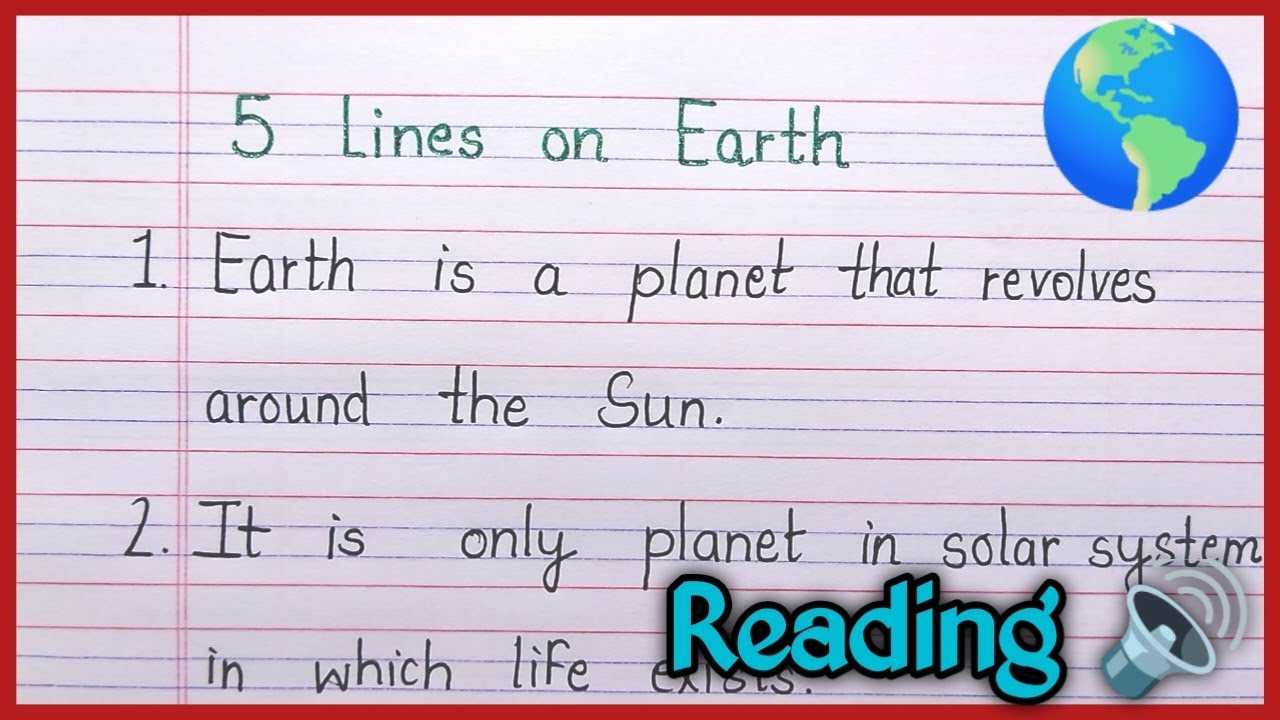 5 Lines on Earth
1. Earth is a planet that revolves
around the Sun.
2. It is only planet in solar system
in which life exists.
Reading